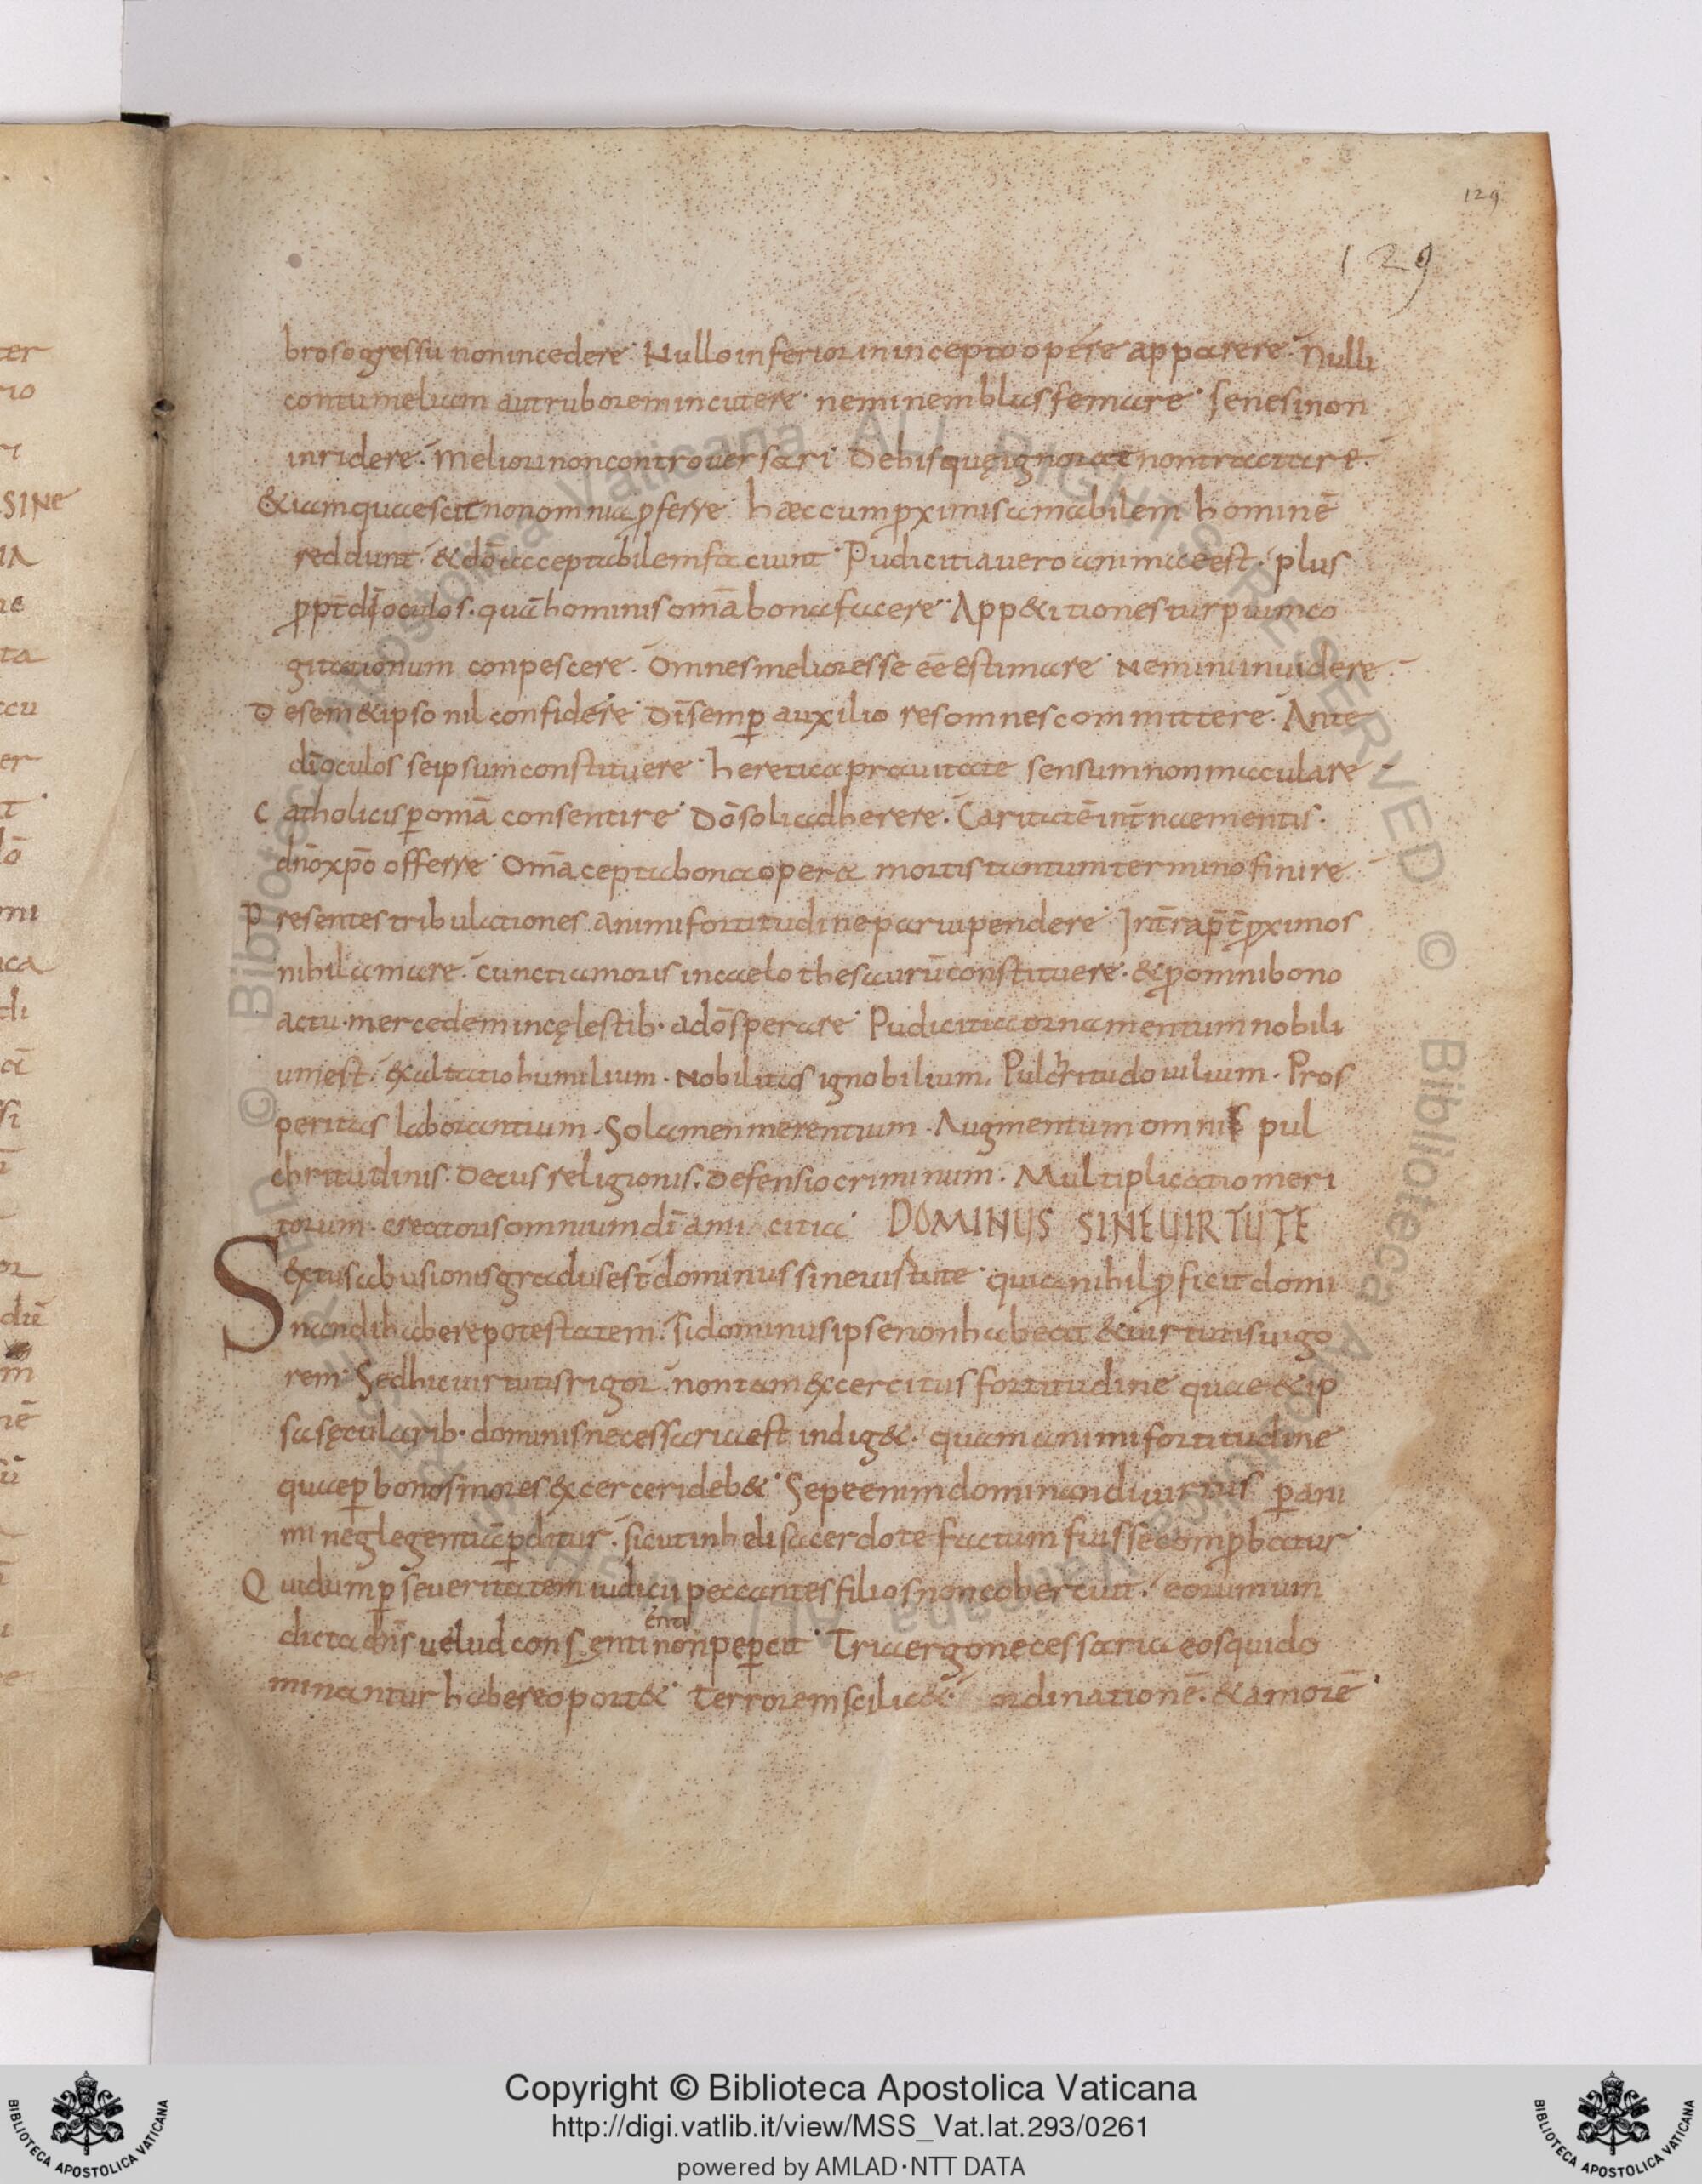 129
129
broso gressu non incedere. Nullo inferior in incepto opere apparere. Nulli
contumeliam aut ruborem incutere. neminem blasfemare. senes inon
inridere. meliori non controversari. De his quę ignorat non tractare.
&iam quae scit non omnia ꝓferre. haec cum ꝓximis amabilem hominē
reddunt. & dō acceptabilem faciunt. Pudicitia uero animae est. plus
ꝓpt̄ dī oculos. quā hominis om̄a bona facere. App&itiones turpium co
gitationum conpescere. Omnes meliores se ēē estimare. Nemini inuidere
De sem&ipso nil confidere. Dī semꝑ auxilio res omnes committere. Ante
dī oculos seipsum constituere. heretica prauitate sensum non maculare
Catholicis ꝑ om̄a consentire. Dō soli adherere. Caritatē int̄nae mentis.
dn̄o xp̄o offerre. Om̄a cepta bona opera mortis tantum termino finire
Presentes tribulationes animi fortitudine parui pendere. Int̄ra p̄t̄ ꝓximos
nihil amare. cuncti amoris in caelo thesaurū constituere. & ꝓ omni bono
actu. mercedem in cęlestib. a dō sperare. Pudicitia ornamentum nobili
um est. exaltatio humilium. Nobilitas ignobilium. Pulchritudo uilium. Pros
peritas laborantium. Solamen merentium. Augmentum omnis pul
chritudinis. Decus religionis. Defensio criminum. Multiplicatio meri
torum. creatoris omnium dī ami citia. DOMINUS SINE UIRTUTE
Sextus abusionis gradus est dominus sine uirtute. quia nihil ꝓficit domi
nandi habere potestatem. si dominus ipse non habeat & uirtutis uigo
rem. Sed hic uirtutis rigor. non tam excercitus fortitudine quae & ip
sa sęcularib. dominis necessaria est indig&. quam animi fortitudine
quae ꝑ bonos mores excerceri deb&. Sepe enim dominandi uirtus ꝑ ani
mi neglegentiā ꝑditur. sicut in heli sacerdote factum fuisse comꝓbatur.
Qui dum ꝑ seueritatem iudicii peccantes filios non cohercuit. eorum um
dicta dn̄s uelud cons enti non peꝑcit. Tria ergo necessaria eos qui do
minantur habere oport&. Terrorem scilic&. ordinationē. & amorē.
Copyright © Biblioteca Apostolica Vaticana
http://digi.vatlib.it/view/MSS_Vat.lat.293/0261
powered by AMLAD·NTT DATA